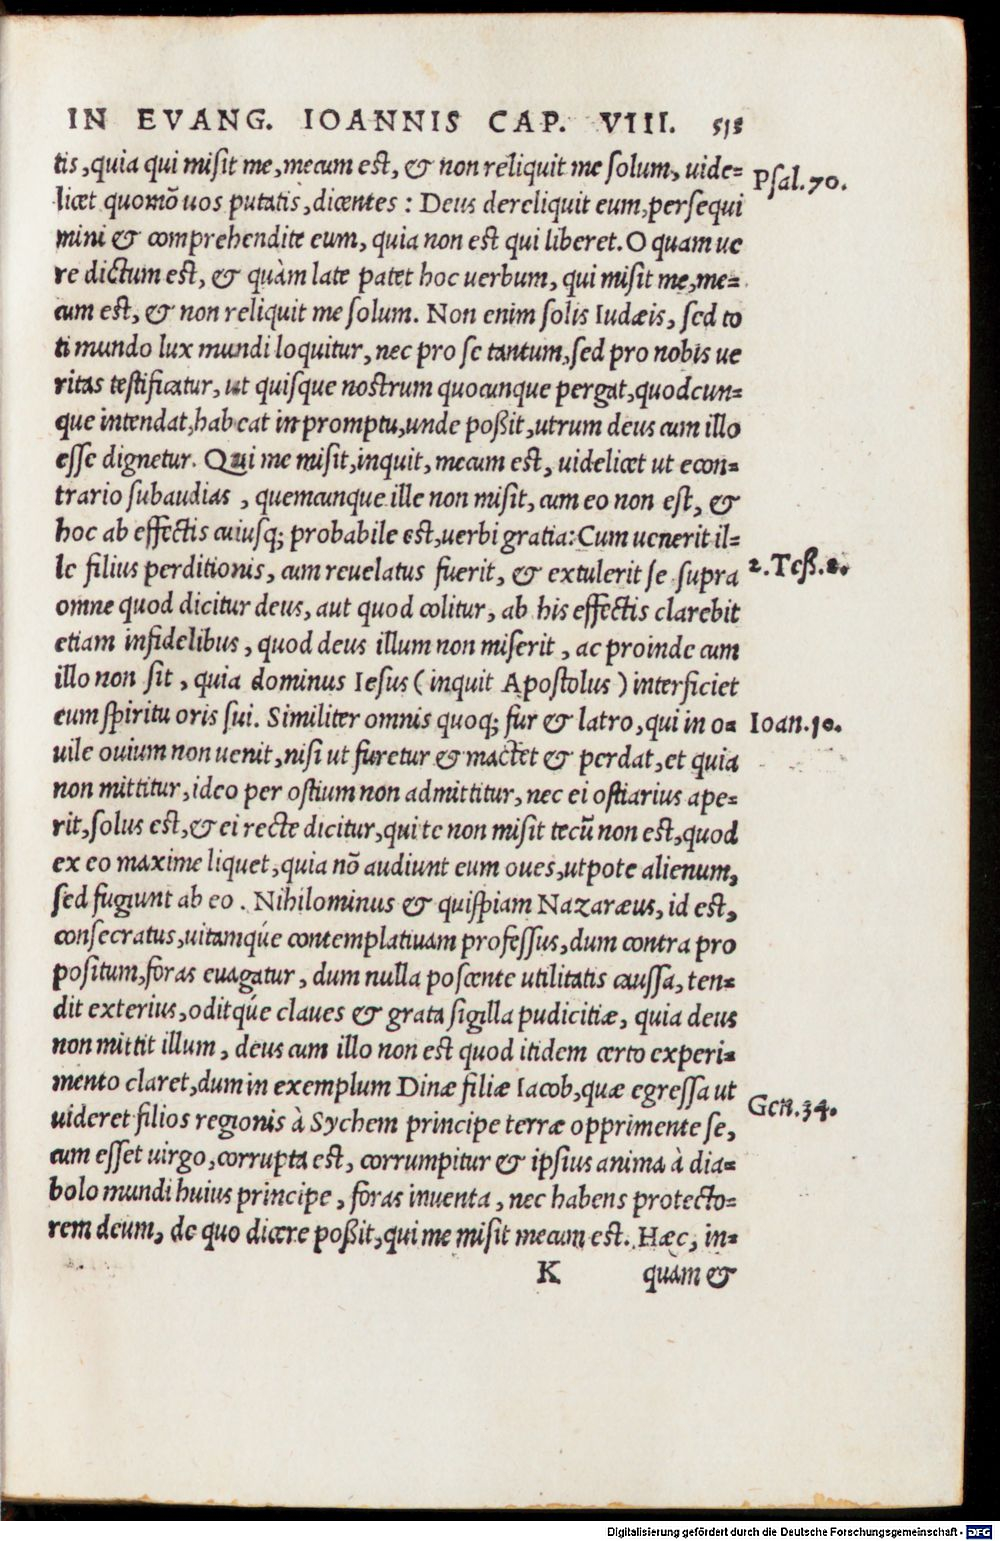 IN EVANG. IOANNIS CAP. VIII. 515
tis, quia qui misit me, mecum est, & non reliquit me solum, uide-
Psal.70.
licet quomō uos putatis, dicentes : Deus dereliquit eum, persequi
mini & comprehendite eum, quia non est qui liberet. O quam ue
re dictum est, & quàm late patet hoc uerbum, qui misit me, me-
cum est, & non reliquit me solum. Non enim solis Iudæis, sed to
ti mundo lux mundi loquitur, nec pro se tantum, sed pro nobis ue
ritas testificatur, ut quisque nostrum quocunque pergat, quodcun-
que intendat, habeat in promptu, unde poßit, utrum deus cum illo
esse dignetur. Qui me misit, inquit, mecum est, uidelicet ut econ-
trario subaudias , quemcunque ille non misit, cum eo non est, &
hoc ab effectis cuiusq; probabile est, uerbi gratia: Cum uenerit il-
le filius perditionis, cum reuelatus fuerit, & extulerit se supra
2.Teß.2.
omne quod dicitur deus, aut quod colitur, ab his effectis clarebit
etiam infidelibus, quod deus illum non miserit, ac proinde cum
illo non sit, quia dominus Iesus (inquit Apostolus) interficiet
eum spiritu oris sui. Similiter omnis quoq; fur & latro, qui in o-
Ioan.10.
uile ouium non uenit, nisi ut furetur & mactet & perdat, et quia
non mittitur, ideo per ostium non admittitur, nec ei ostiarius ape-
rit, solus est, & ei recte dicitur, qui te non misit tecū non est, quod
ex eo maxime liquet, quia nō audiunt eum oues, utpote alienum,
sed fugiunt ab eo . Nihilominus & quispiam Nazaræus, id est,
consecratus, uitamq́ue contemplatiuam professus, dum contra pro
positum, foras euagatur, dum nulla poscente utilitatis caussa, ten-
dit exterius, oditq́ue claues & grata sigilla pudicitiæ, quia deus
non mittit illum, deus cum illo non est quod itidem certo experi-
mento claret, dum in exemplum Dinæ filiæ Iacob, quæ egressa ut
Gen.34.
uideret filios regionis à Sychem principe terræ opprimente se,
cum esset uirgo, corrupta est, corrumpitur & ipsius anima à dia-
bolo mundi huius principe, foras inuenta, nec habens protecto-
rem deum, de quo dicere poßit, qui me misit mecum est. Hæc, in-
K quàm &
Digitalisierung gefördert durch die Deutsche Forschungsgemeinschaft - DFG